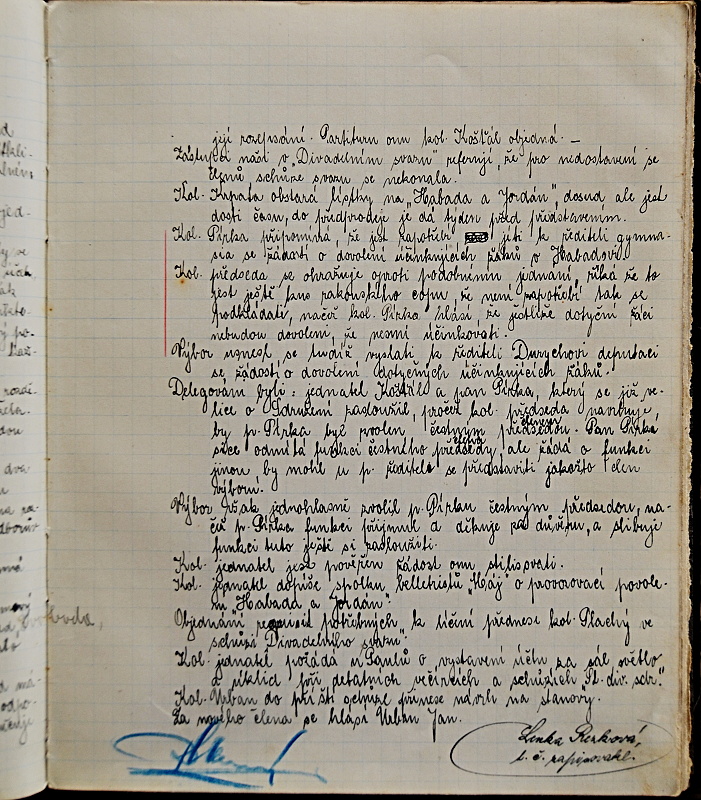 její rozepsání. Partituru onu kol. Košťál objedná. —
Zástupci naši v „Divadelním svazu" referují, že pro nedostavení se
členů schůze svazu se nekonala.
Kol. Krpata obstará lístky na „Habada a Jordán", dosud ale jest
dosti času, do předprodeje je dá týden před představením.
Kol. Pírka připomíná, že jest zapotřebí jíti k řediteli gymna-
sia se žádostí o dovolení účinkujících žáků v Habadovi.
Kol. předseda se ohražuje oproti podobnému jednání, říká že to
jest ještě za rakouského a že není zapotřebí tak se
podkládati, načež kol. Pírka hlásí že jestliže dotyční žáci
nebudou dovoleni, že nesmí účinkovati.
Výbor usnesl se tudíž vyslati k řediteli Durychovi deputaci
se žádostí o dovolení dotyčných účinkujících žáků.
Delegováni byli: jednatel Košťál a pan Pírka, který se již ve-
lice o Sdružení zasloužil, pročež kol. předseda navrhuje,
by p. Pírka byl zvolen čestným předsedou. Pan Pírka
sice odmítá funkci čestného předsedy, ale žádá o funkci
jinou by mohl u p. ředitele se představiti jakožto člen
výboru.
Výbor však jednohlasně zvolil p. Pírku čestným předsedou, na-
čež p. Pírka funkci přijímá a děkuje za důvěru, a slibuje
funkci tuto ještě si zasloužiti.
Kol. jednatel jest pověřen žádost onu stilisovati.
Kol. jednatel dopíše spolku belletristů „Máj" o provozovací povole-
ní „Habada a Jordán".
Objednání potřebných k líčení přednese kol. Plachý ve
schůzi „Divadelního svazu".
Kol. jednatel požádá u Pantů o vystavení účtu za sál světlo
a úklid při debatních večírcích a schůzích „St. div. sdr."
Kol. Urban do příští schůze přinese návrh na stanovy.
Za nového člena se hlásí Urban Jan.
Lenka
t. č. zapisovatel.